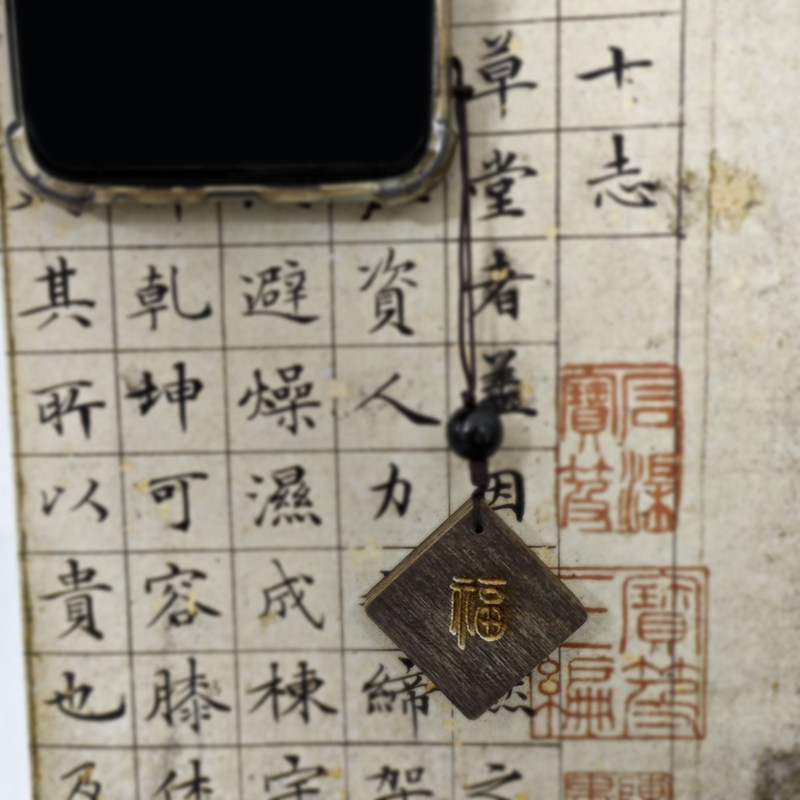 十志
草堂者蓋因之
資人力締架
避燥濕成棟宇
乾坤可容膝休
其所以貴也及
石渠寶笈
寶笈三編
福